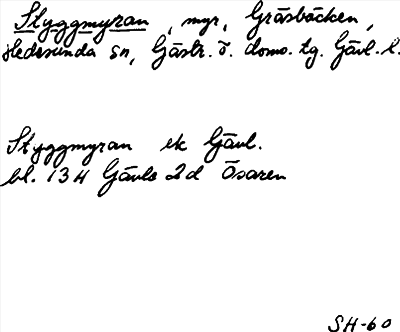 Styggmyran, myr, Gräsbäcken,
Hedesunda sn, Gästr. ö. domo. tg. Gävl. l.
Styggmyran ek Gävl.
bl. 134 Gävle 2d Ösaren
SH-60